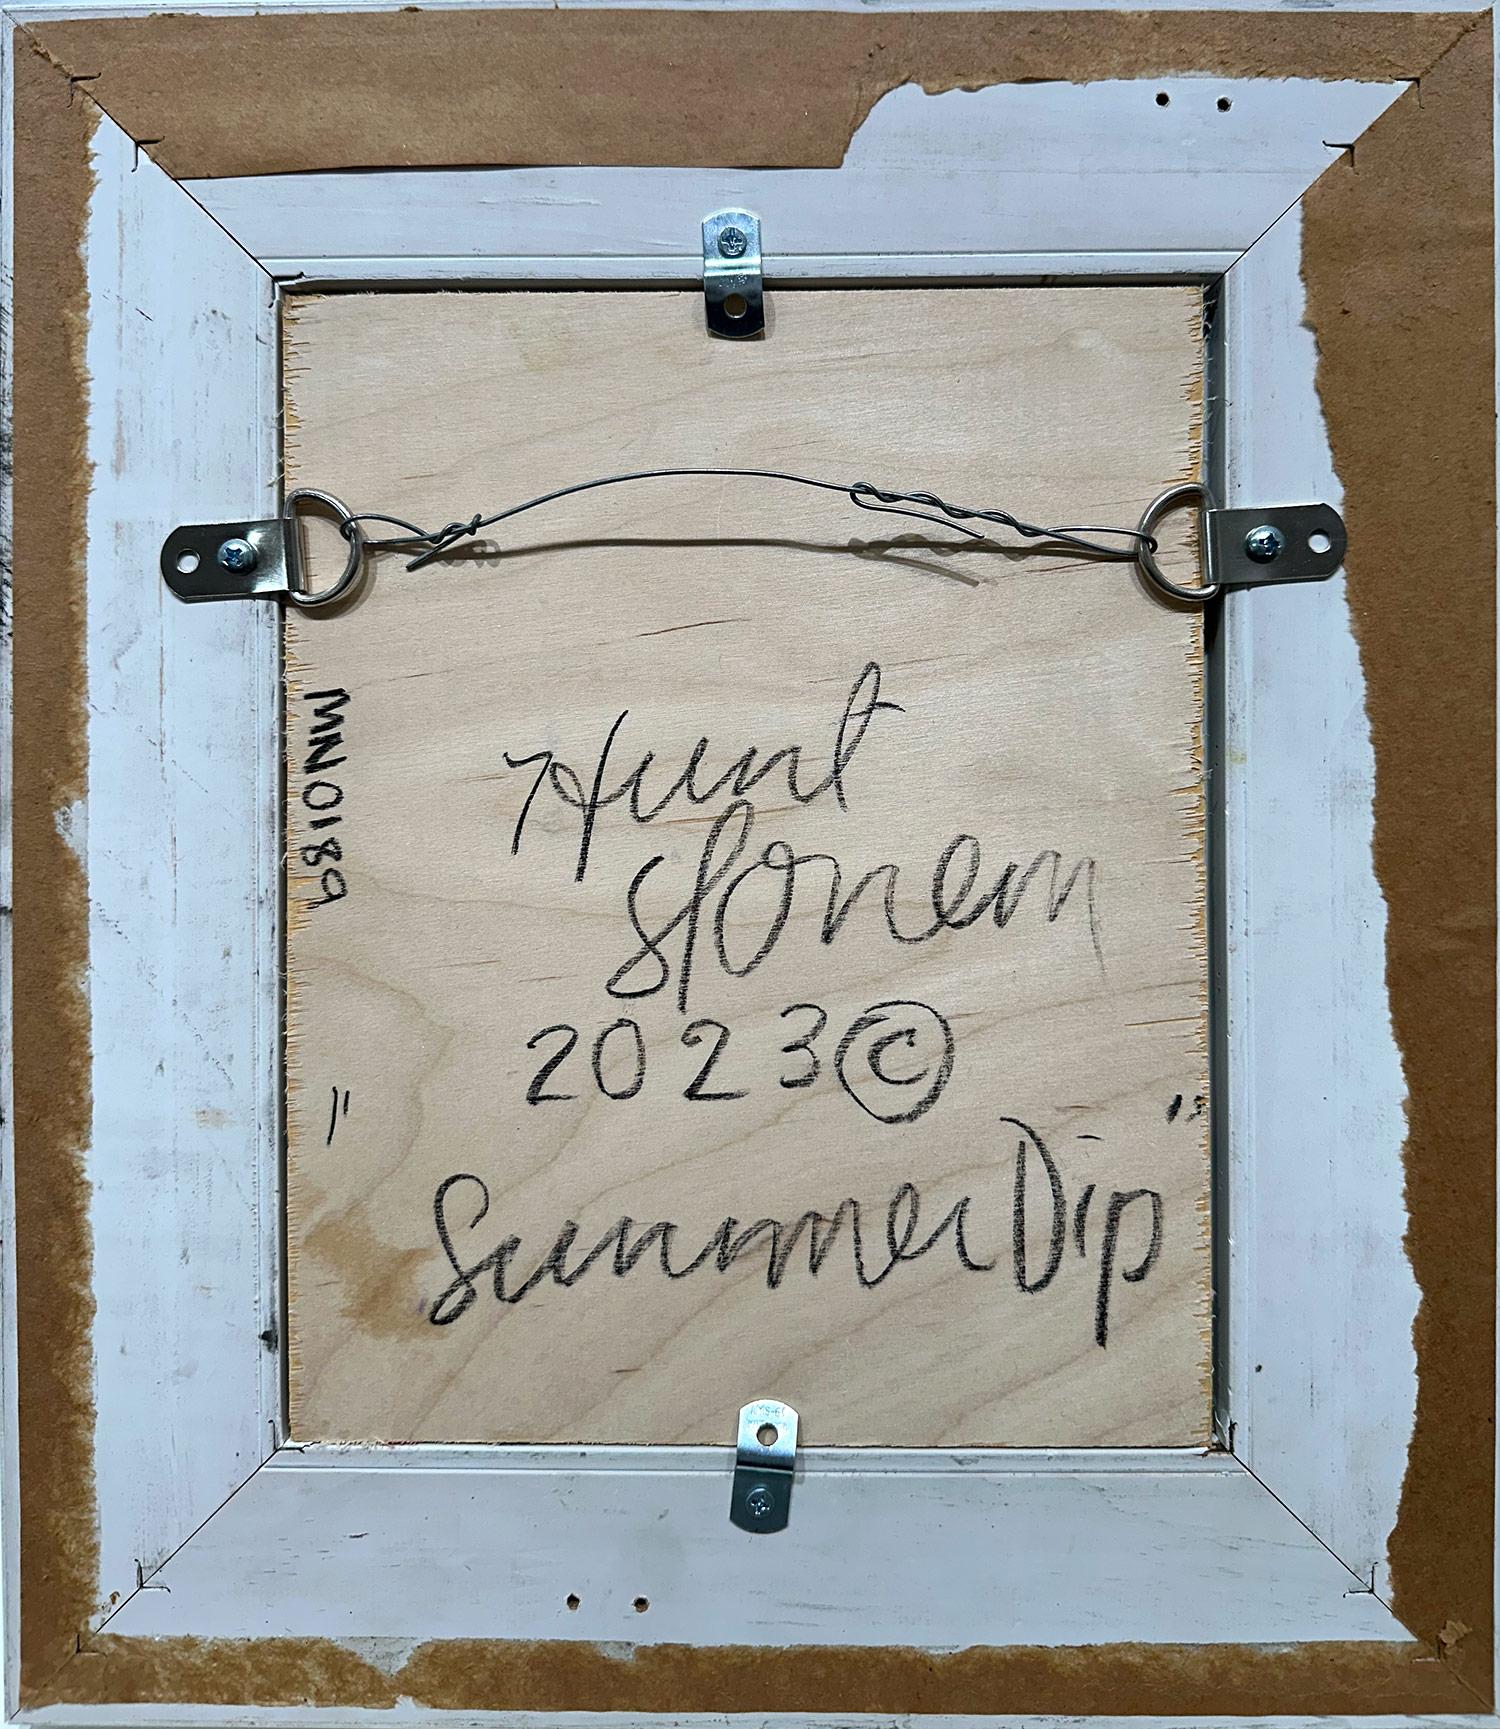 MN0189
Hunt
Slonem
2023©
"Summer Dip"